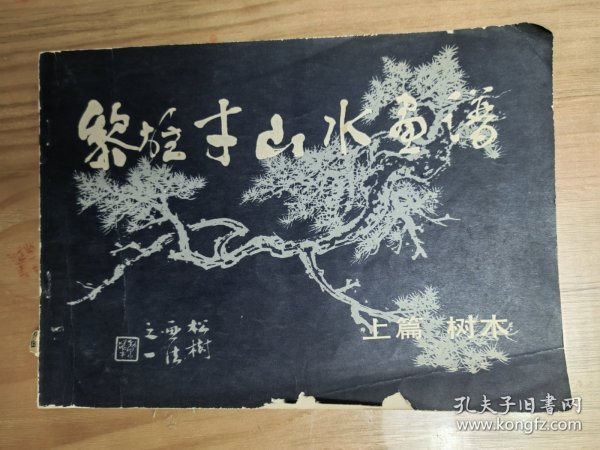 黎雄才山水画谱
上篇 树木
松樹
画法
之一
孔夫子旧書网
www.kongfz.com